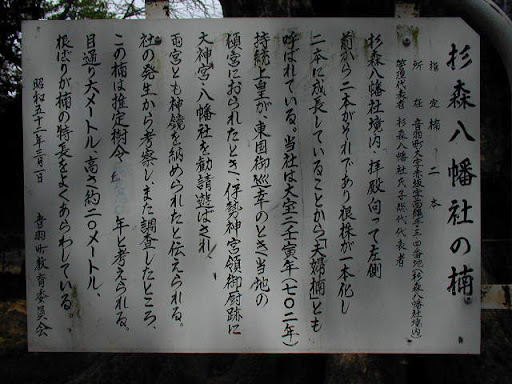 杉森八幡社の楠
指定 楠 二本
所在 音羽町大字赤坂
管理代表者 杉森八幡社氏子総代代表者
杉森八幡社境内、拝殿向って左側
前から二本がそれであり根株が一本化し
二本に成長していることから「夫婦楠」とも
呼ばれている。当社は大宝二壬寅年(七〇二年)
持統上皇が、東国御巡幸のとき当地の
頓宮におられたとき、伊勢神宮領御厨跡に
大神宮・八幡社を勧請遊ばされ、
両宮とも神鏡を納められたと伝えられる。
社の発生から考察し、また調査したところ、
この楠は推定樹令 年と考えられる。
目通り六メートル、高さ約二〇メートル、
根ばりが楠の特長をよくあらわしている。
昭和五十三年三月一日 音羽町教育委員会